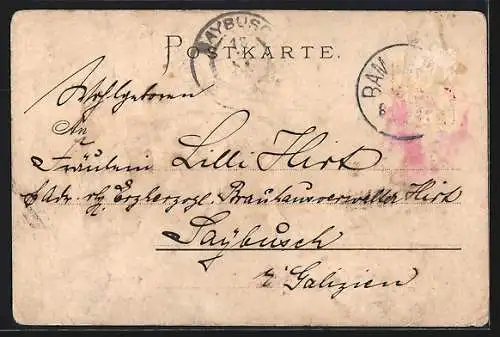 SAYBUSCH
POSTKARTE.
BAM
Wohlgeboren
An
Fräulein Lilli Hirt
p Adr. Erzherzogl. Brauhausverwalter Hirt
Saybusch
Galizien